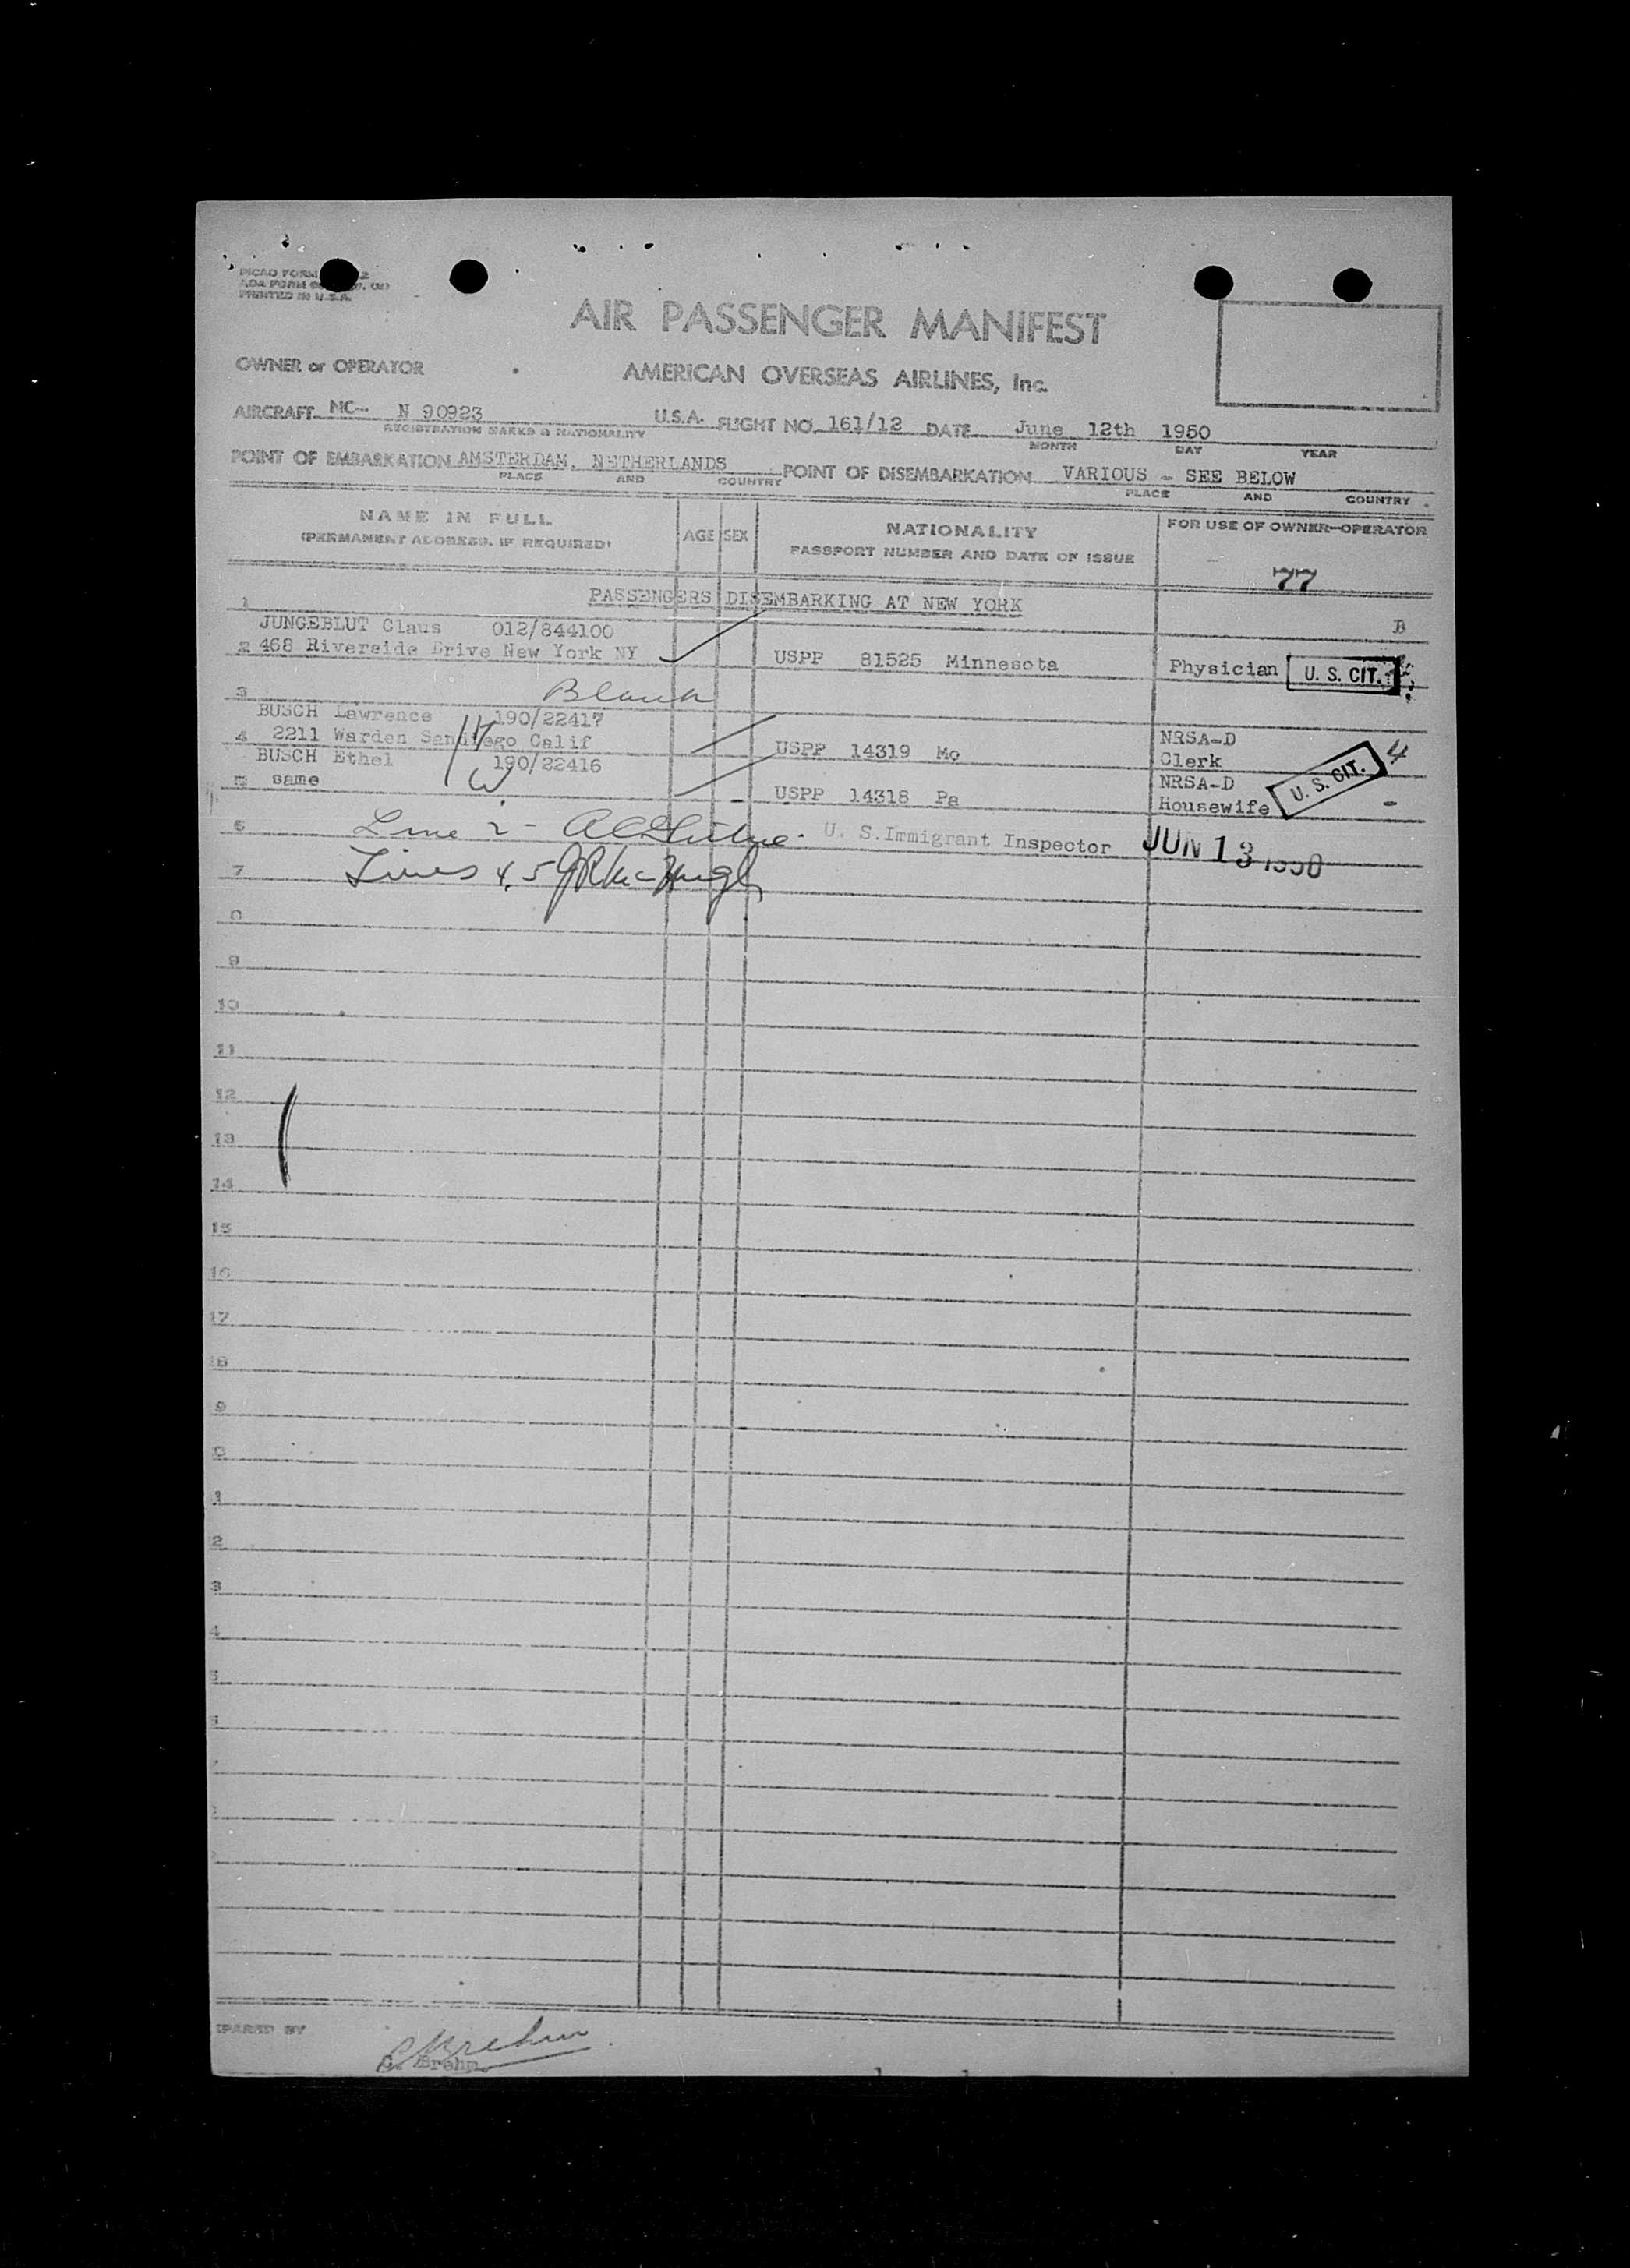 PICAO FORM
PRINTED IN U.S.A.
AIR PASSENGER MANIFEST
OWNER or OPERATOR AMERICAN OVERSEAS AIRLINES, Inc.
AIRCRAFT NC-- N 90923 U.S.A. FLIGHT NO. 161/12 DATE June 12th 1950
REGISTRATION MARKS & NATIONALITY MONTH DAY YEAR
POINT OF EMBARKATION AMSTERDAM, NETHERLANDS POINT OF DISEMBARKATION VARIOUS - SEE BELOW
PLACE AND COUNTRY PLACE AND COUNTRY
NAME IN FULL AGE SEX NATIONALITY FOR USE OF OWNER-OPERATOR
(PERMANENT ADDRESS, IF REQUIRED) PASSPORT NUMBER AND DATE OF ISSUE
77
1 PASSENGERS DISEMBARKING AT NEW YORK
JUNGEBLUT Claus 012/844100 B
2 468 Riverside Drive New York NY USPP 81525 Minnesota Physician U. S. CIT.
3 Blank
BUSCH Lawrence 190/22417 NRSA-D
4 2211 Warden Sandiego Calif H USPP 14319 Mo Clerk 4
BUSCH Ethel 190/22416 NRSA-D
5 same W USPP 14318 Pa Housewife U. S. CIT.
6 Line 2 - U. S. Immigrant Inspector JUN 13 1950
7 Lines 4,5
8
9
10
11
12
13
14
15
16
17
18
9
0
1
2
3
4
5
PARED BY
C. Brehm